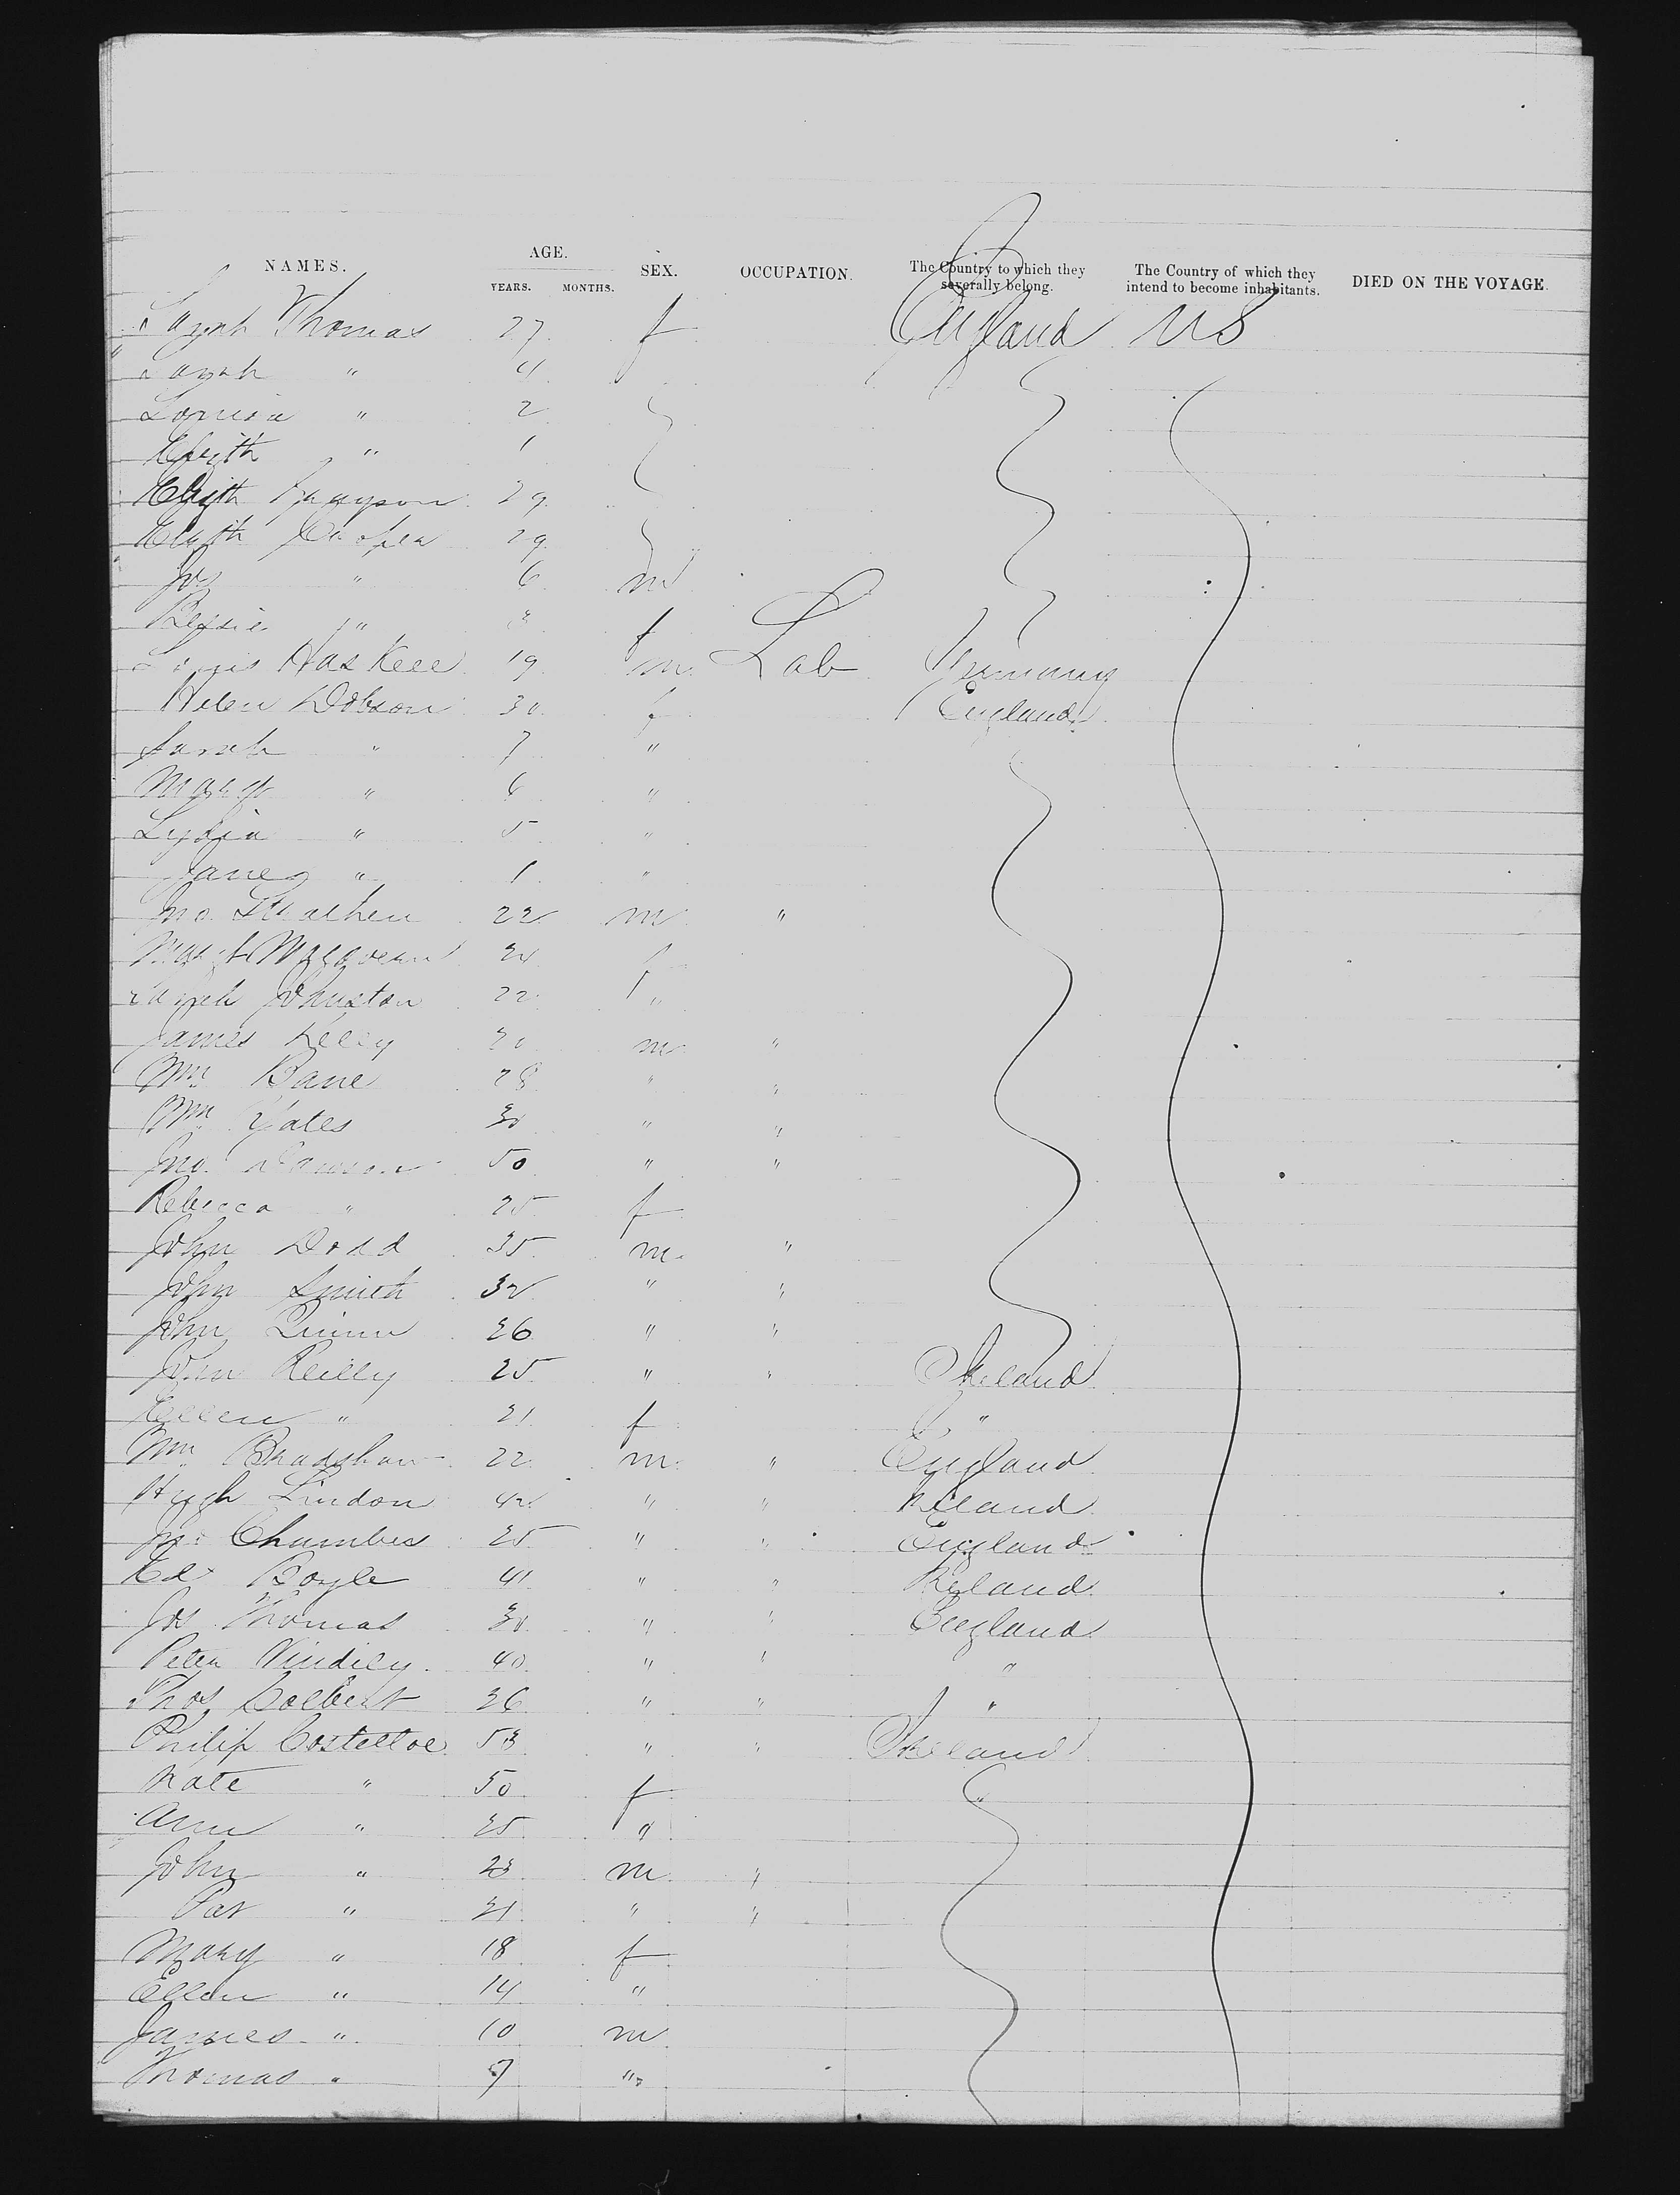 NAMES. AGE. YEARS. MONTHS. SEX. OCCUPATION. The Country to which they severally belong. The Country of which they intend to become inhabitants. DIED ON THE VOYAGE.
Sarah Thomas 27 f England US
Sarah " 4
Louisa " 2
Elizth " 1
Elizth 29
Elizth Cooper 29
Jos " 6 m
Bessie " 3 f
Louis Haskell 19 m Lab Germany
Helen Dobson 30 f England
Sarah " 7 "
Margt " 6 "
Lydia " 5 "
Jane " 1 "
Jno 22 m "
Margt 24 f
Sarah Johnston 22 "
James Kelly 20 m "
Wm Bane 28 " "
Wm Yates 30 " "
Jno Dawson 50 " "
Rebecca " 25 f
John Dodd 35 m "
John Smith 32 " "
John Quinn 26 " "
John Reilly 25 " " Ireland
Ellen " 21 f "
Wm Bradshaw 22 m " England
Hugh Lindon 42 " " Ireland
Jno Chambers 25 " " England
Ed Boyle 41 " " Ireland
Jos Thomas 30 " " England
Peter 40 " " "
Thos Colbert 26 " " "
Philip Costelloe 53 " " Ireland
Kate " 50 f "
Ann " 25 "
John " 23 m "
Pat " 21 " "
Mary " 18 f
Ellen " 14 "
James " 10 m
Thomas " 7 "